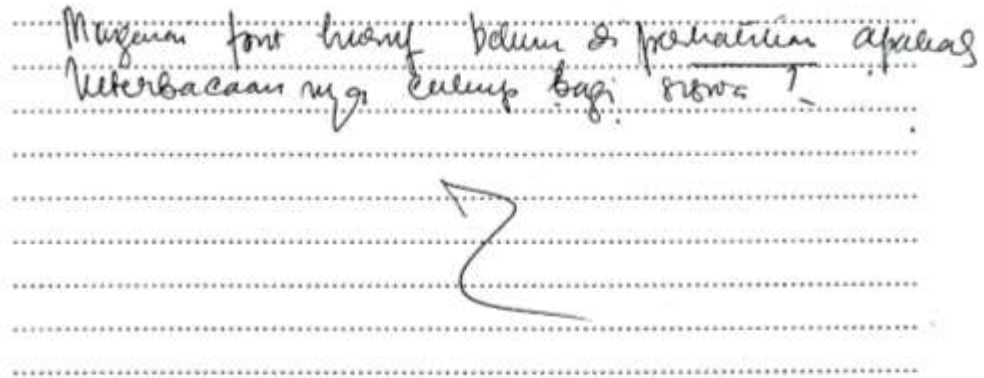 Mengenai font huruf belum di perhatikan apakah
keterbacaan nya cukup bagi siswa ?